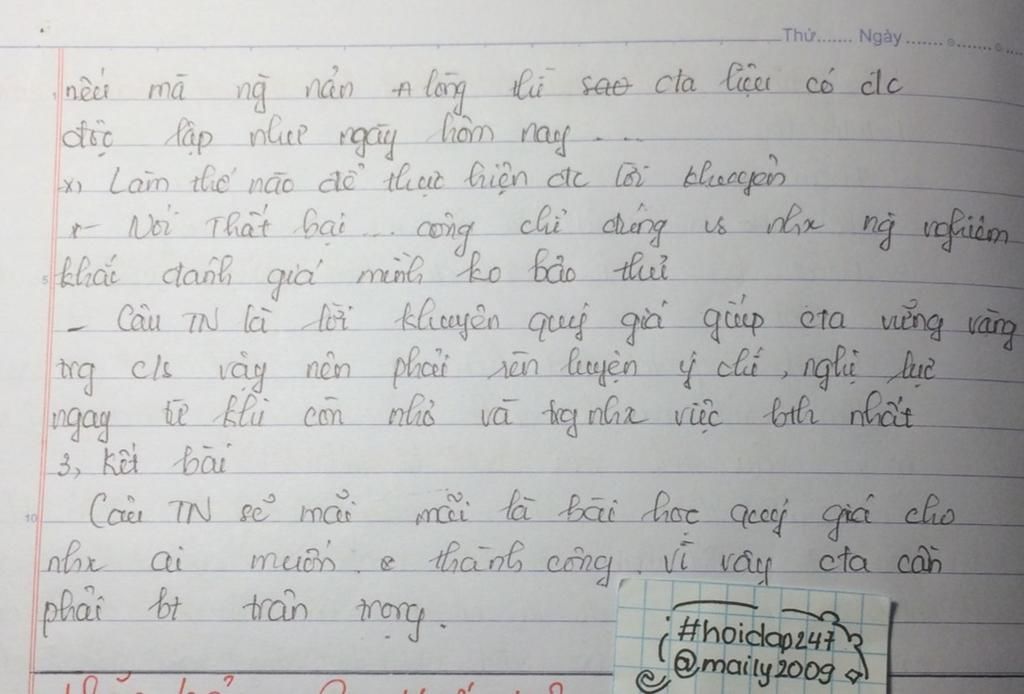 Thứ....... Ngày.............
nếu mà ng̀ nản lòng thì sao cta liệu có đc
độc lập như ngày hôm nay ....
x, Làm thế nào để thực hiện đc lời khuyên
- Nói Thất bại ... công chỉ đúng vs nhx ng̀ nghiêm
5
khắc đánh giá mình ko bảo thủ
- Câu TN là lời khuyên quý giá giúp cta vững vàng
trg c/s vậy nên phải rèn luyện ý chí, nghị lực
ngay từ khi còn nhỏ và trg nhx việc bth nhất
3, Kết bài
10
Câu TN sẽ mãi mãi là bài học quý giá cho
nhx ai muốn thành công. Vì vậy cta cần
phải bt trân trọng.
#hoidap247
@maily2009